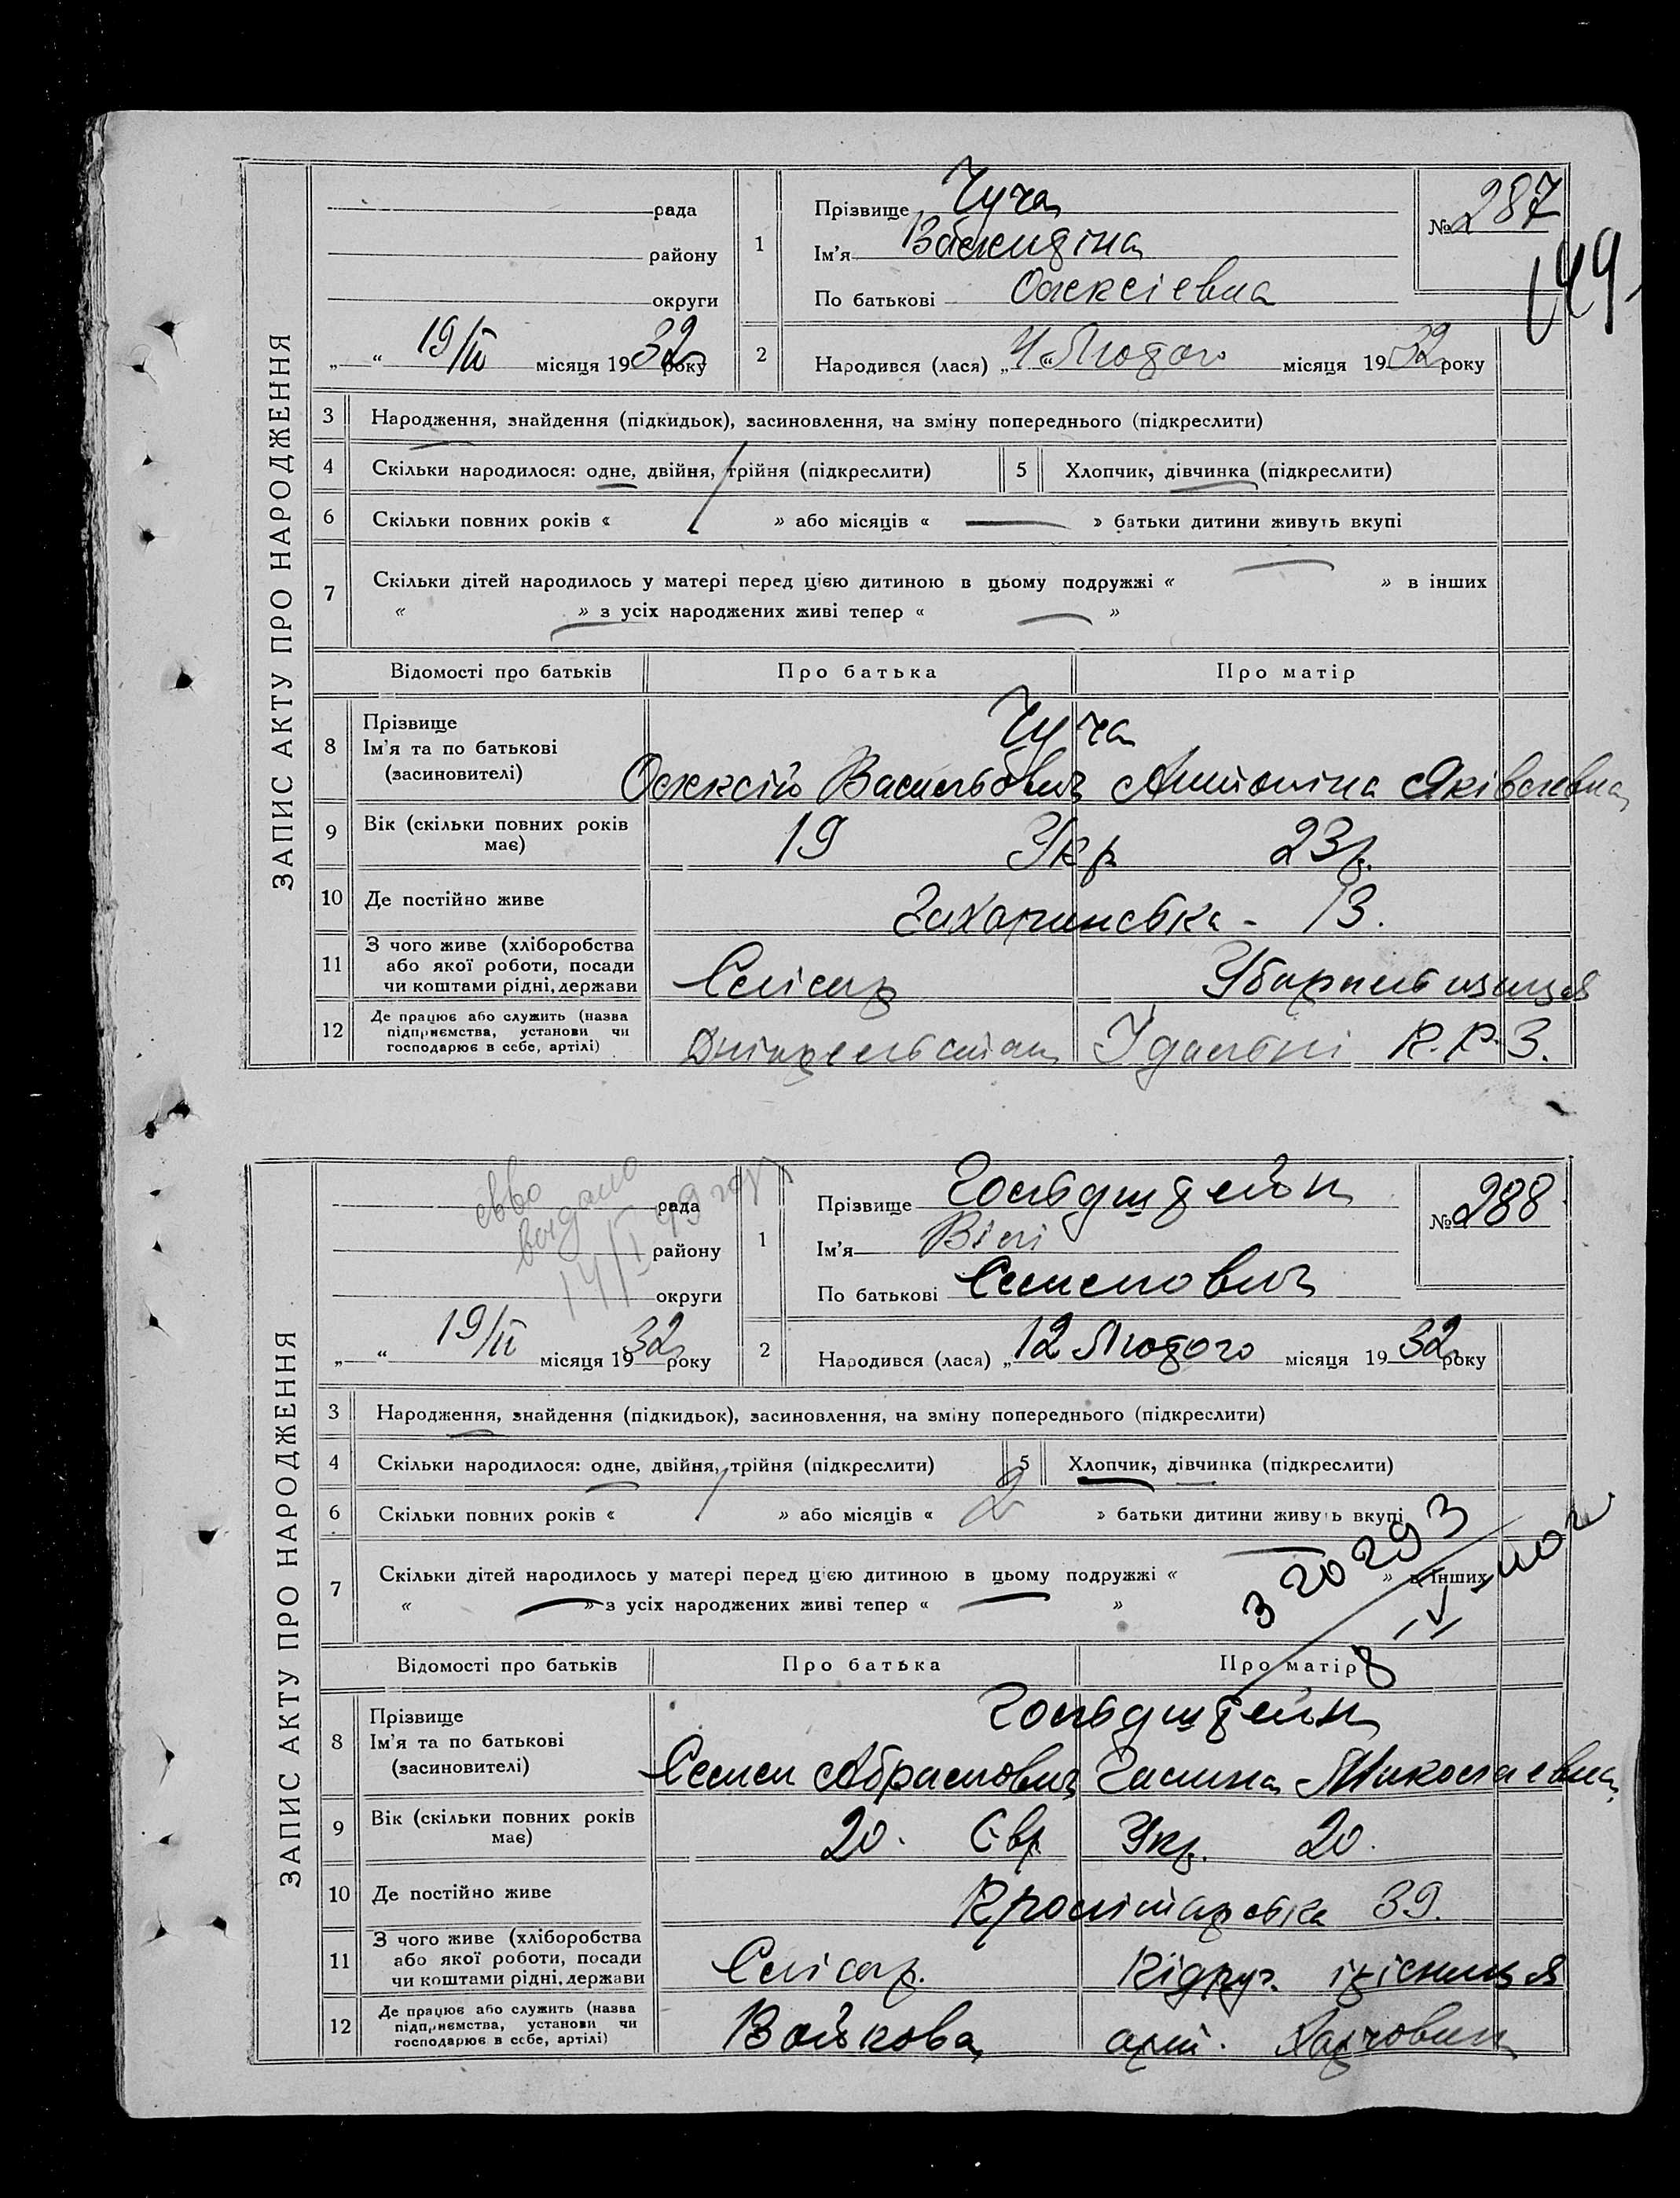 ЗАПИС АКТУ ПРО НАРОДЖЕННЯ
рада
району
округи
„ “ 19/II місяця 1932 року
1
Прізвище Чуча
Ім'я Валентіна
По батькові Олексієвна
№ 287
149
2 Народився (лася) „4“ Лютого місяця 1932 року
3 Народження, знайдення (підкидьок), засиновлення, на зміну попереднього (підкреслити)
4 Скільки народилося: одне, двійня, трійня (підкреслити) 5 Хлопчик, дівчинка (підкреслити)
6 Скільки повних років « » або місяців « — » батьки дитини живуть вкупі
7 Скільки дітей народилось у матері перед цією дитиною в цьому подружжі « — » в інших
« — » з усіх народжених живі тепер « — »
Відомості про батьків Про батька Про матір
8 Прізвище
Ім'я та по батькові
(засиновителі)
Чуча
Олексій Васильович Антоніна Яківлевна
9 Вік (скільки повних років має) 19 Укр 23р.
10 Де постійно живе 13.
11 З чого живе (хліборобства або якої роботи, посади чи коштами рідні, держави Слісар Убиральщиця
12 Де працює або служить (назва підприємства, установи чи господарює в себе, артілі) Дніпрельстан Їдальні
ЗАПИС АКТУ ПРО НАРОДЖЕННЯ
рада
району
округи
видано
„ “ 19/II місяця 1932 року
1
Прізвище Гольдштейн
Ім'я Вілі
По батькові Семенович
№ 288
2 Народився (лася) „12 Лютого місяця 1932 року
3 Народження, знайдення (підкидьок), засиновлення, на зміну попереднього (підкреслити)
4 Скільки народилося: одне, двійня, трійня (підкреслити) 5 Хлопчик, дівчинка (підкреслити)
6 Скільки повних років « » або місяців « 2 » батьки дитини живуть вкупі
7 Скільки дітей народилось у матері перед цією дитиною в цьому подружжі « — » в інших
« — » з усіх народжених живі тепер « — »
3 20293
Відомості про батьків Про батька Про матір
8 Прізвище
Ім'я та по батькові
(засиновителі)
Гольдштейн
Семен Абрамович Галина Миколаевна
9 Вік (скільки повних років має) 20. Євр Укр. 20.
10 Де постійно живе Пролітарська 39.
11 З чого живе (хліборобства або якої роботи, посади чи коштами рідні, держави Слісар.
12 Де працює або служить (назва підприємства, установи чи господарює в себе, артілі) Войкова арт. Харчовик